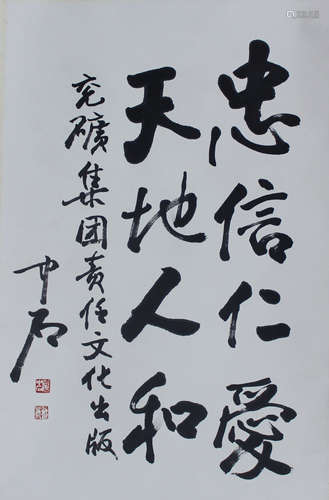 忠信仁爱
天地人和
兖礦集团责任文化出版
中石